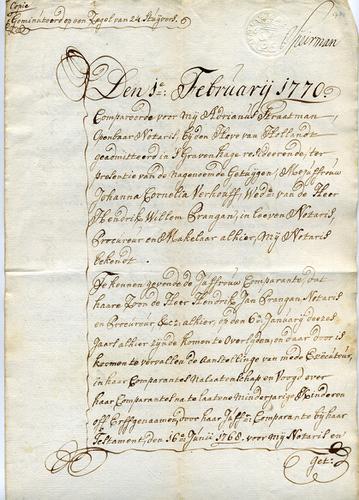 Copie
Geminuteerd op een Zegel van 24 Stuijvers.
Schurman
Den 1e: Februarij 1770.
Compareerde voor mij Adrianus Straatman,
Openbaar Notaris, bij den Hove van Hollandt
geadmitteerd in 's Gravenhage resideerende, ter
presentie van de nagenoemde Getuijgen, Mejuffrouw
Johanna Cornelia Verhouff, Wede: van de Heer
Hendrik Willem Prangan, in Leeven Notaris,
Procureur en Makelaar alhier, mij Notaris
bekendt.
Te kennen gevende de Juffrouw Comparante, dat
haare Zoon de Heer Hendrik Jan Prangan, Notaris
en Procureur, &c: alhier, op den 6e: January deezes
Jaars alhier zijnde komen te Overlijden, en daar door is
komen te vervallen de Aanstellinge van mede Executeur,
in haar Comparantes Nalaatenschap en Voogd over
haar Comparantes na te laatene Minderjarige Kinderen
off Erffgenaamen, door haar Juffre: Comparante bij haar
Testament, den 16e: Junii 1768. voor mij Notaris en
get: